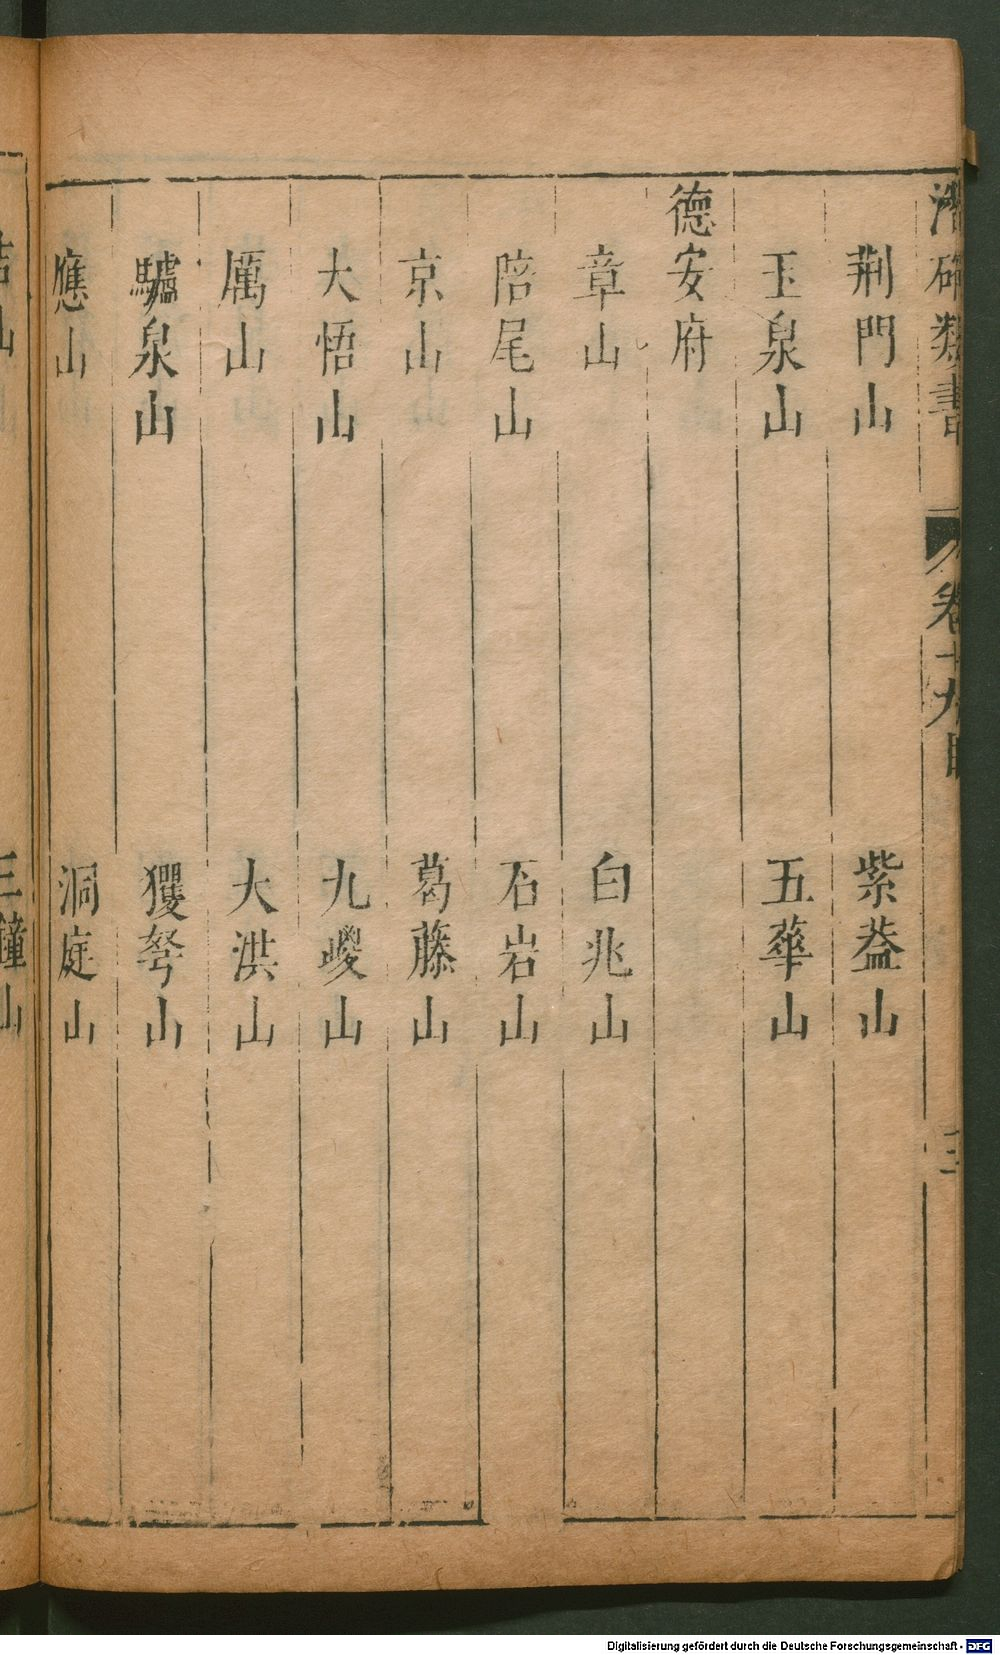 潛確類書
卷十九目
三
荆門山 紫葢山
玉泉山 五華山
德安府
章山 白兆山
陪尾山 石岩山
京山 葛藤山
大悟山 九嵕山
厲山 大洪山
驢泉山 玃弩山
應山 洞庭山
三鐘山
Digitalisierung gefördert durch die Deutsche Forschungsgemeinschaft - DFG